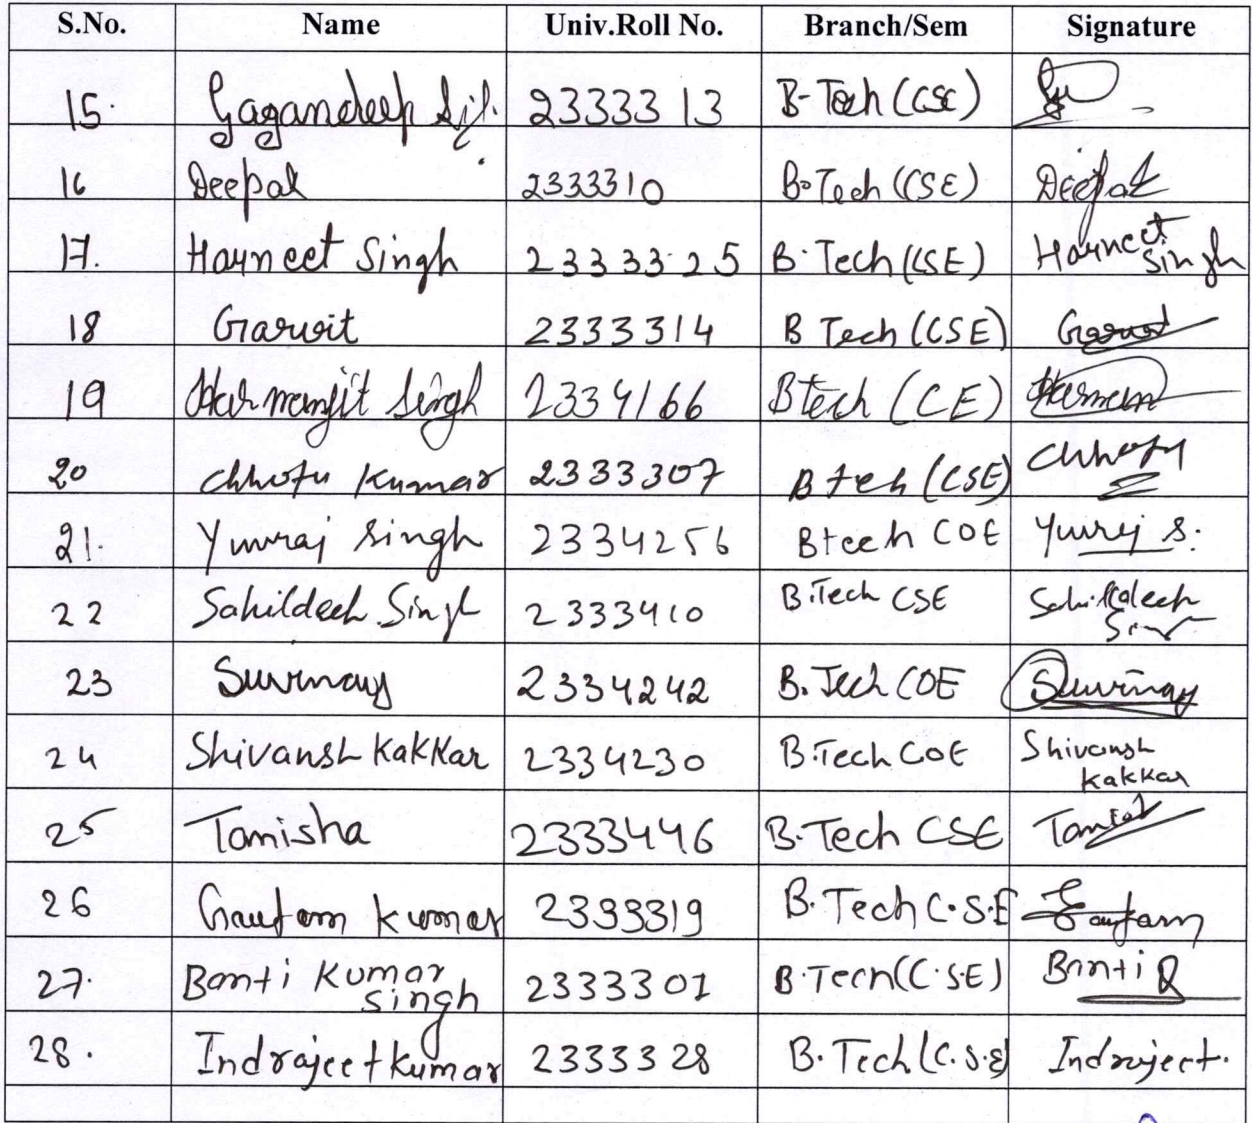 S.No. Name Univ.Roll No. Branch/Sem Signature
15. Gagandeep 2333313 B-Tech (CSE)
16 Deepak 2333310 B.Tech (CSE) Deepak
17. Harneet Singh 2333325 B.Tech (CSE) Harneet Singh
18 Garvit 2333314 B Tech (CSE) Garvit
19 Harmanjit Singh 2334166 Btech (CE) Harman
20 Chhotu Kumar 2333307 B tech (CSE) Chhotu
21. Yuvraj Singh 2334256 Bteeh COE Yuvraj S.
22 Sahildeep Singh 2333410 B.Tech CSE Sahildeep Singh
23 Suvinay 2334242 B.Tech COE Suvinay
24 Shivansh Kakkar 2334230 B.Tech COE Shivansh Kakkar
25 Tanisha 2333446 B.Tech CSE
26 Gautam Kumar 2333319 B.Tech C.S.E Gautam
27. Banti Kumar Singh 2333301 B.Tech(C.S.E) Banti
28. Indrajeet kumar 2333328 B.Tech(C.S.E) Indrajeet.